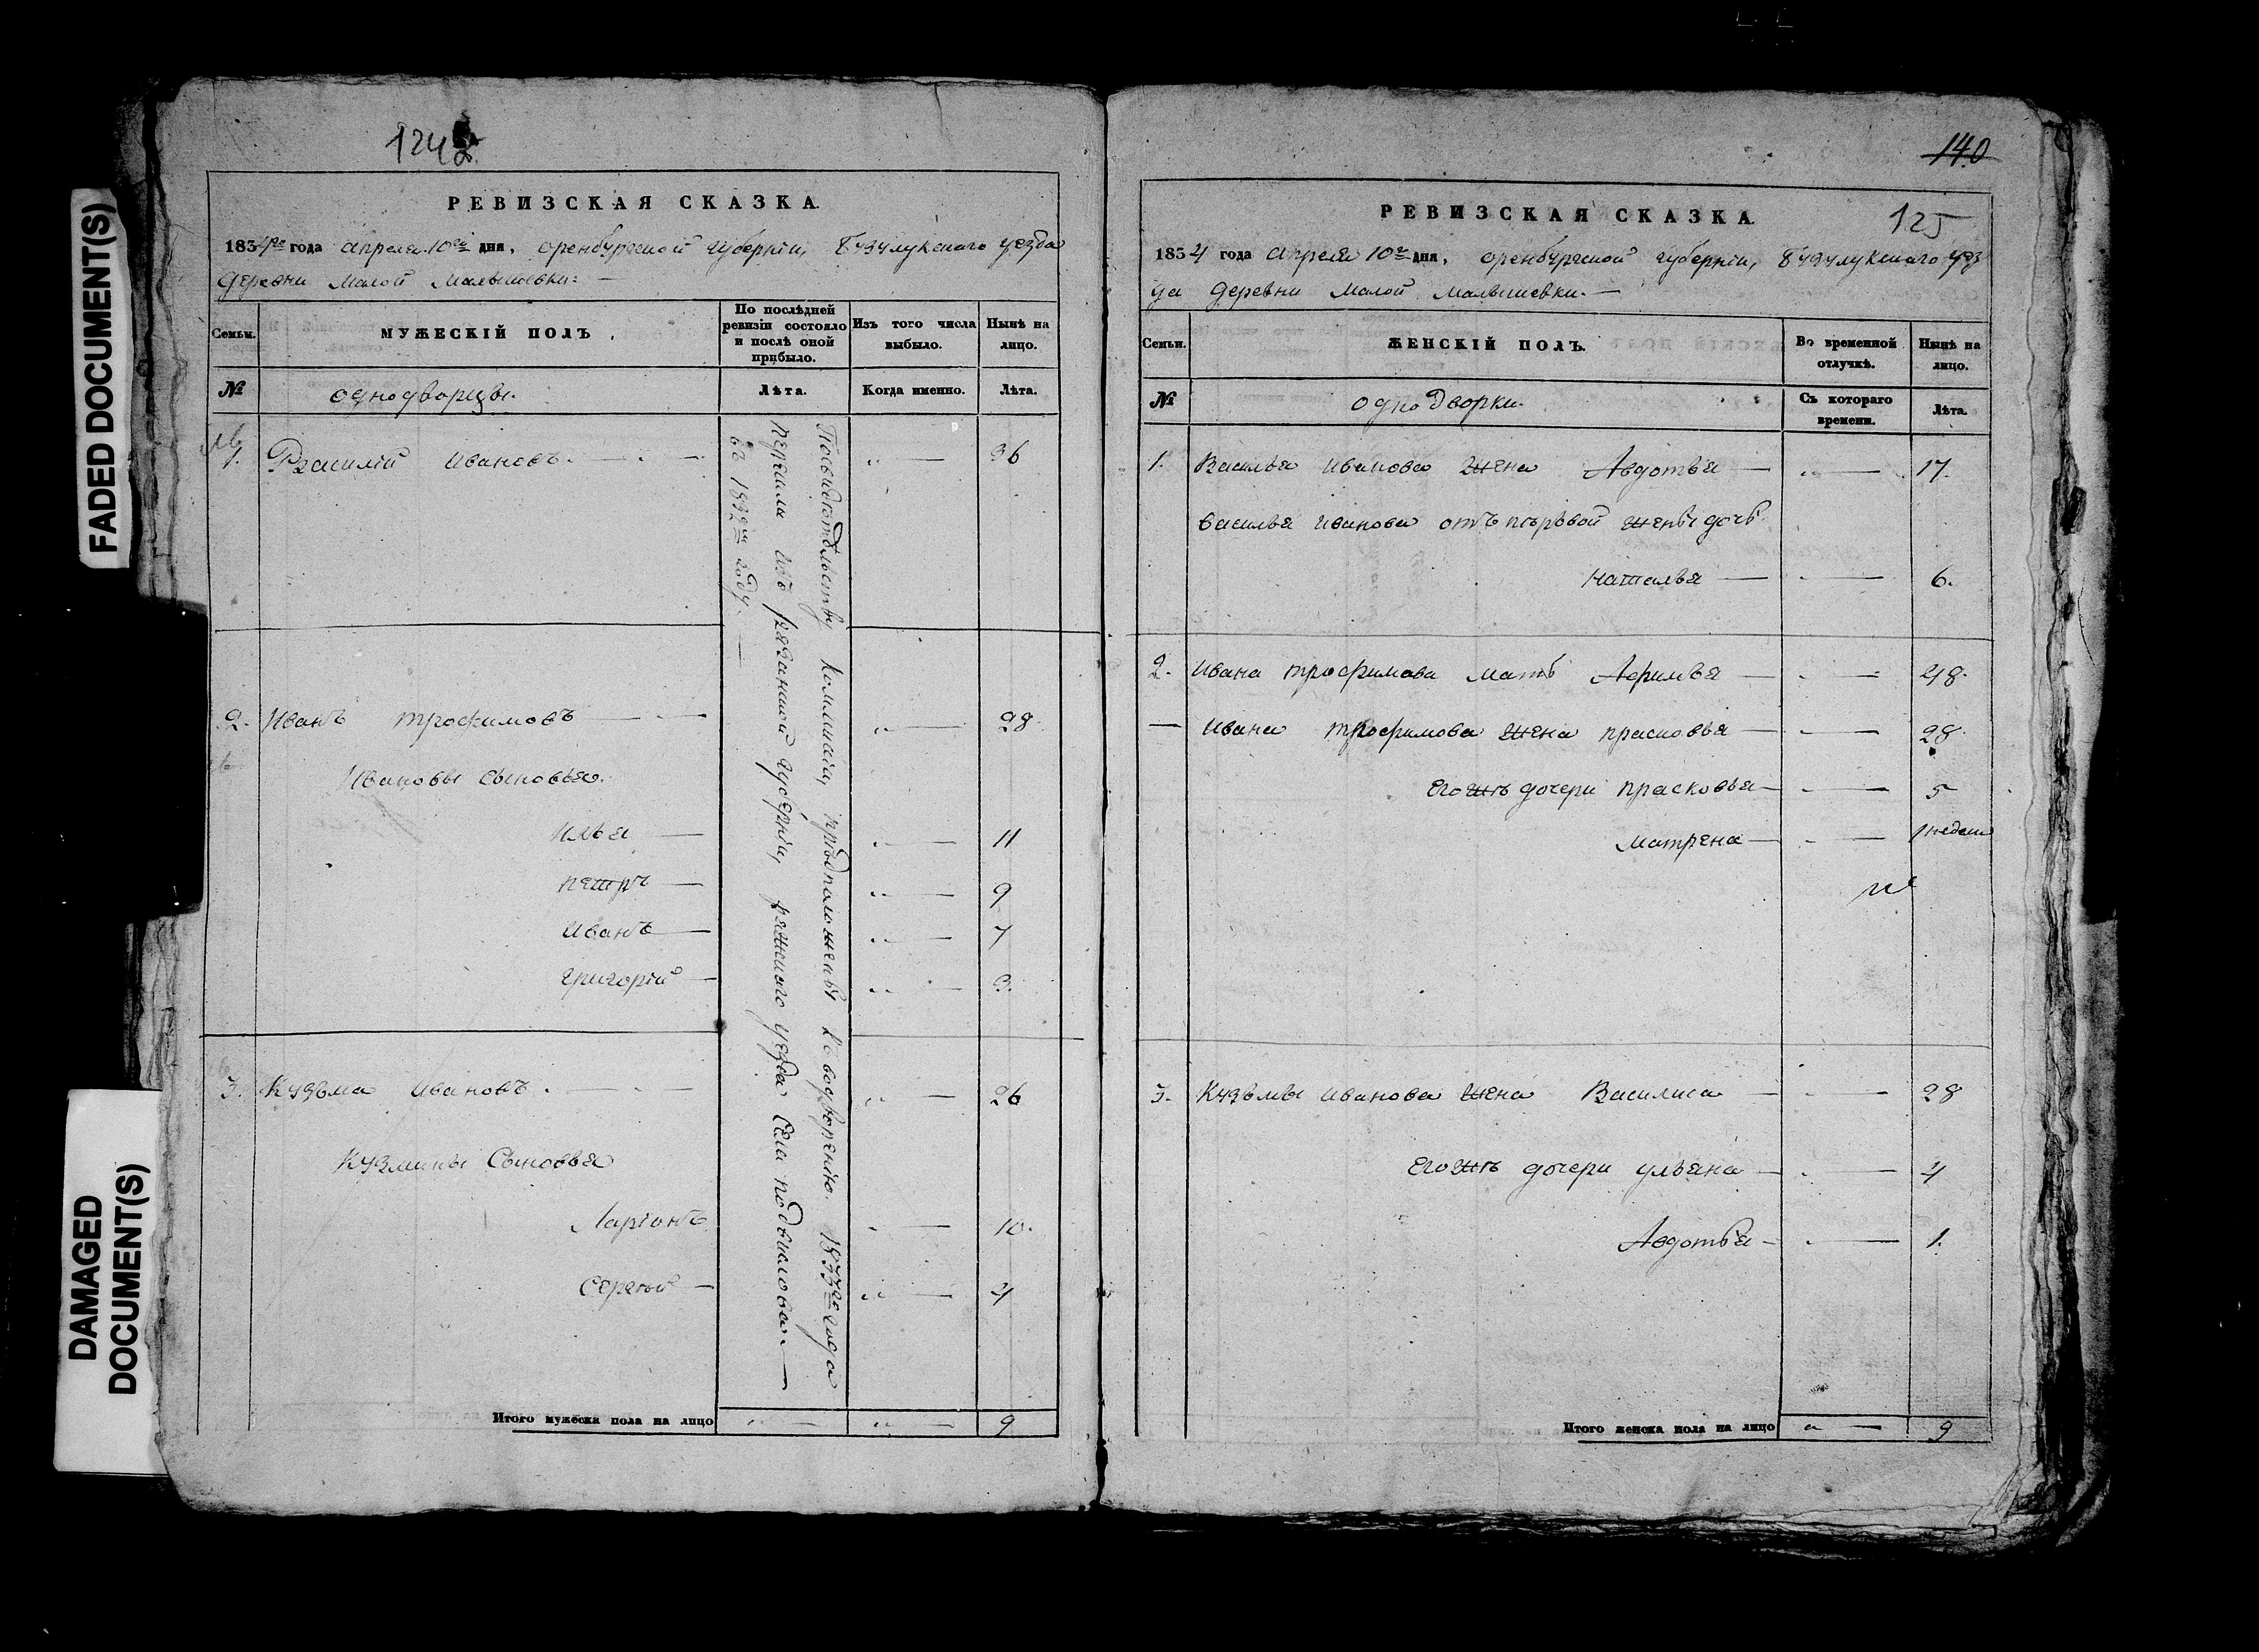 FADED DOCUMENT(S)
DAMAGED
DOCUMENT(S)
124
РЕВИЗСКАЯ СКАЗКА.
1834го года апреля 10го дня, оренбургской губернiи, бузулукскаго уезда
деревни малой малышевки: —
Семьи.
МУЖЕСКIЙ ПОЛЪ.
По послѣдней
ревизiи состояло
и послѣ оной
прибыло.
Изъ того числа
выбыло.
Нынѣ на
лицо.
№
однодворцы.
Лѣта.
Когда именно.
Лѣта.
1. Василiй ивановъ. — „ — 36
2. Иванъ трофимовъ — „ — 28.
Ивановы сыновья.
илья — „ — 11
петръ — „ — 9
иванъ — „ — 7
григорiй — „ — 3.
3. Кузьма ивановъ. — „ — 26
Кузмины Сыновья
Ларiонъ „ — 10.
Сергей — „ — 4
По свидетельству коммисiи, предположены къ водворенiю. 1833го года
пришли изъ рязанской губернiи, ряжскаго уезда села подвислова. —
въ 1832м году. —
Итого мужеска пола на лицо „ — „ — 9
140
125
РЕВИЗСКАЯ СКАЗКА.
1834 года апреля 10го дня, оренбургской губернiи, бузулукскаго уез
да деревни малой малышевки. —
Семьи.
ЖЕНСКIЙ ПОЛЪ.
Во временной
отлучкѣ.
Нынѣ на
лицо.
№
однодворки.
Съ котораго
времени.
Лѣта.
1. Василья иванова жена Авдотья — „ — 17.
василья иванова отъ первой жены дочь
наталья — „ — 6.
2. ивана трофимова мать Афимья — „ — 48.
— ивана трофимова жена прасковья — „ — 28.
егожъ дочери прасковья — „ — 5
матрена — „ — 1 недели
3. Кузьмы иванова жена Василиса — „ — 28
егожъ дочери ульяна — „ — 4
Авдотья — „ — 1.
Итого женска пола на лицо „ — 9